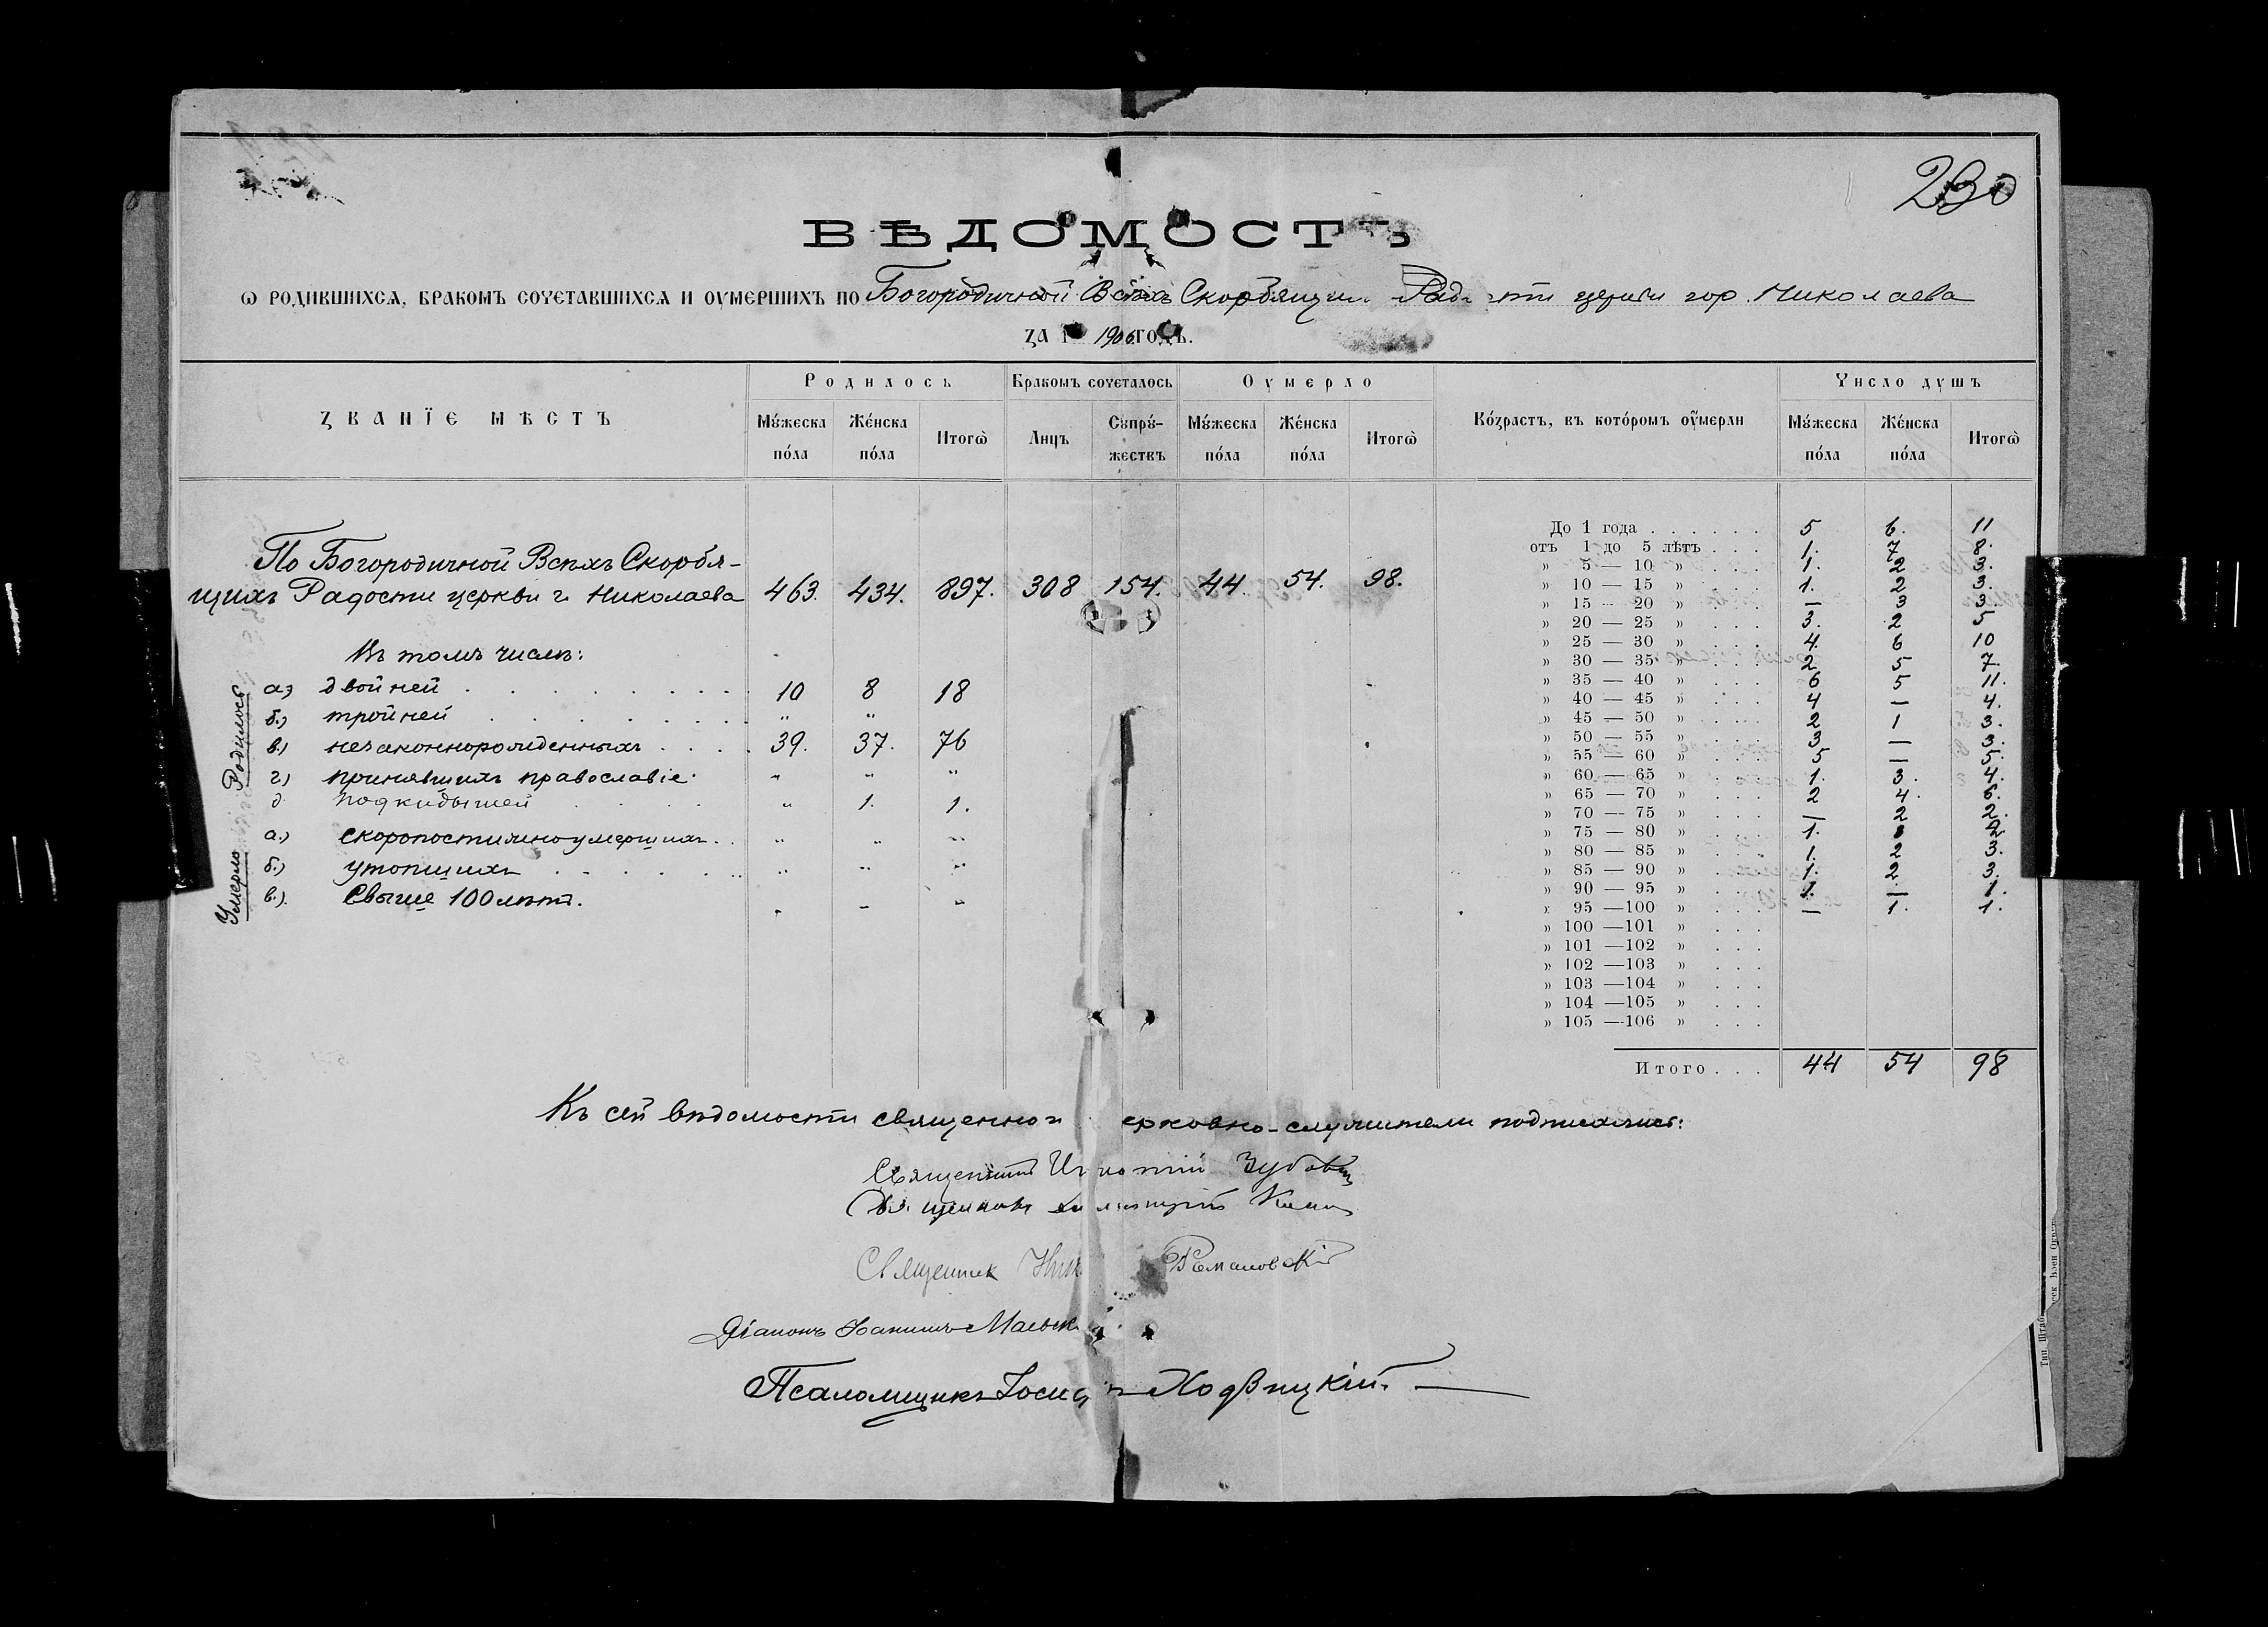 230
ВѢДОМОСТЬ
Ѡ РОДИВШИХСѦ, БРАКОМЪ СОЧЕТАВШИХСѦ И ОУМЕРШИХЪ ПО Богородичной Всѣхъ Скорбящихъ Радости церкви гор. Николаева
ЗА 1906 ГОДЪ.
ЗВАНЇЕ МѢСТЪ
Родилось
Бракомъ сочеталось
Оумерло
Во́зрастъ, въ кото́ромъ оу҆́мерли
Число душъ
Му́жеска по́ла
Же́нска по́ла
Итогѡ̀
Лицъ
Супру́жествъ
Му́жеска по́ла
Же́нска по́ла
Итогѡ̀
Му́жеска по́ла
Же́нска по́ла
Итогѡ̀
По Богородичной Всѣхъ Скорбя-
щихъ Радости церкви г. Николаева 463. 434. 897. 308 154. 44. 54. 98.
Въ томъ числѣ:
Родилось
а) двойней 10 8 18
б) тройней " "
в) незаконнорожденныхъ 39. 37. 76
г) принявшихъ православіе " " "
д подкидышей " 1. 1.
Умерло
а.) скоропостижно умершихъ " " "
б.) утопшихъ " " "
в.) Свыше 100 лѣтъ. " " "
До 1 года 5 6. 11
отъ 1 до 5 лѣтъ 1. 7 8.
" 5 — 10 " 1. 2 3.
" 10 — 15 " 1. 2 3.
" 15 — 20 " — 3 3.
" 20 — 25 " 3. 2 5
" 25 — 30 " 4. 6 10
" 30 — 35 " 2 5 7.
" 35 — 40 " 6 5 11.
" 40 — 45 " 4 — 4.
" 45 — 50 " 2 1 3.
" 50 — 55 " 3 — 3.
" 55 — 60 " 5 — 5.
" 60 — 65 " 1. 3. 4.
" 65 — 70 " 2 4. 6.
" 70 — 75 " — 2 2.
" 75 — 80 " 1.
" 80 — 85 " 1. 2 3.
" 85 — 90 " 1. 2 3.
" 90 — 95 " 1. — 1.
" 95 —100 " — 1. 1.
" 100 —101 "
" 101 —102 "
" 102 —103 "
" 103 —104 "
" 104 —105 "
" 105 —106 "
Итого 44 54 98
Къ сей вѣдомости священно и ерковно-служители подписались:
Священникъ Зубов
Священникъ
Священник Ник Романовскій
Діаконъ Іоаннъ Маевск
Псаломщикъ Іосиф Ходвицкій.
Тип. Штаб